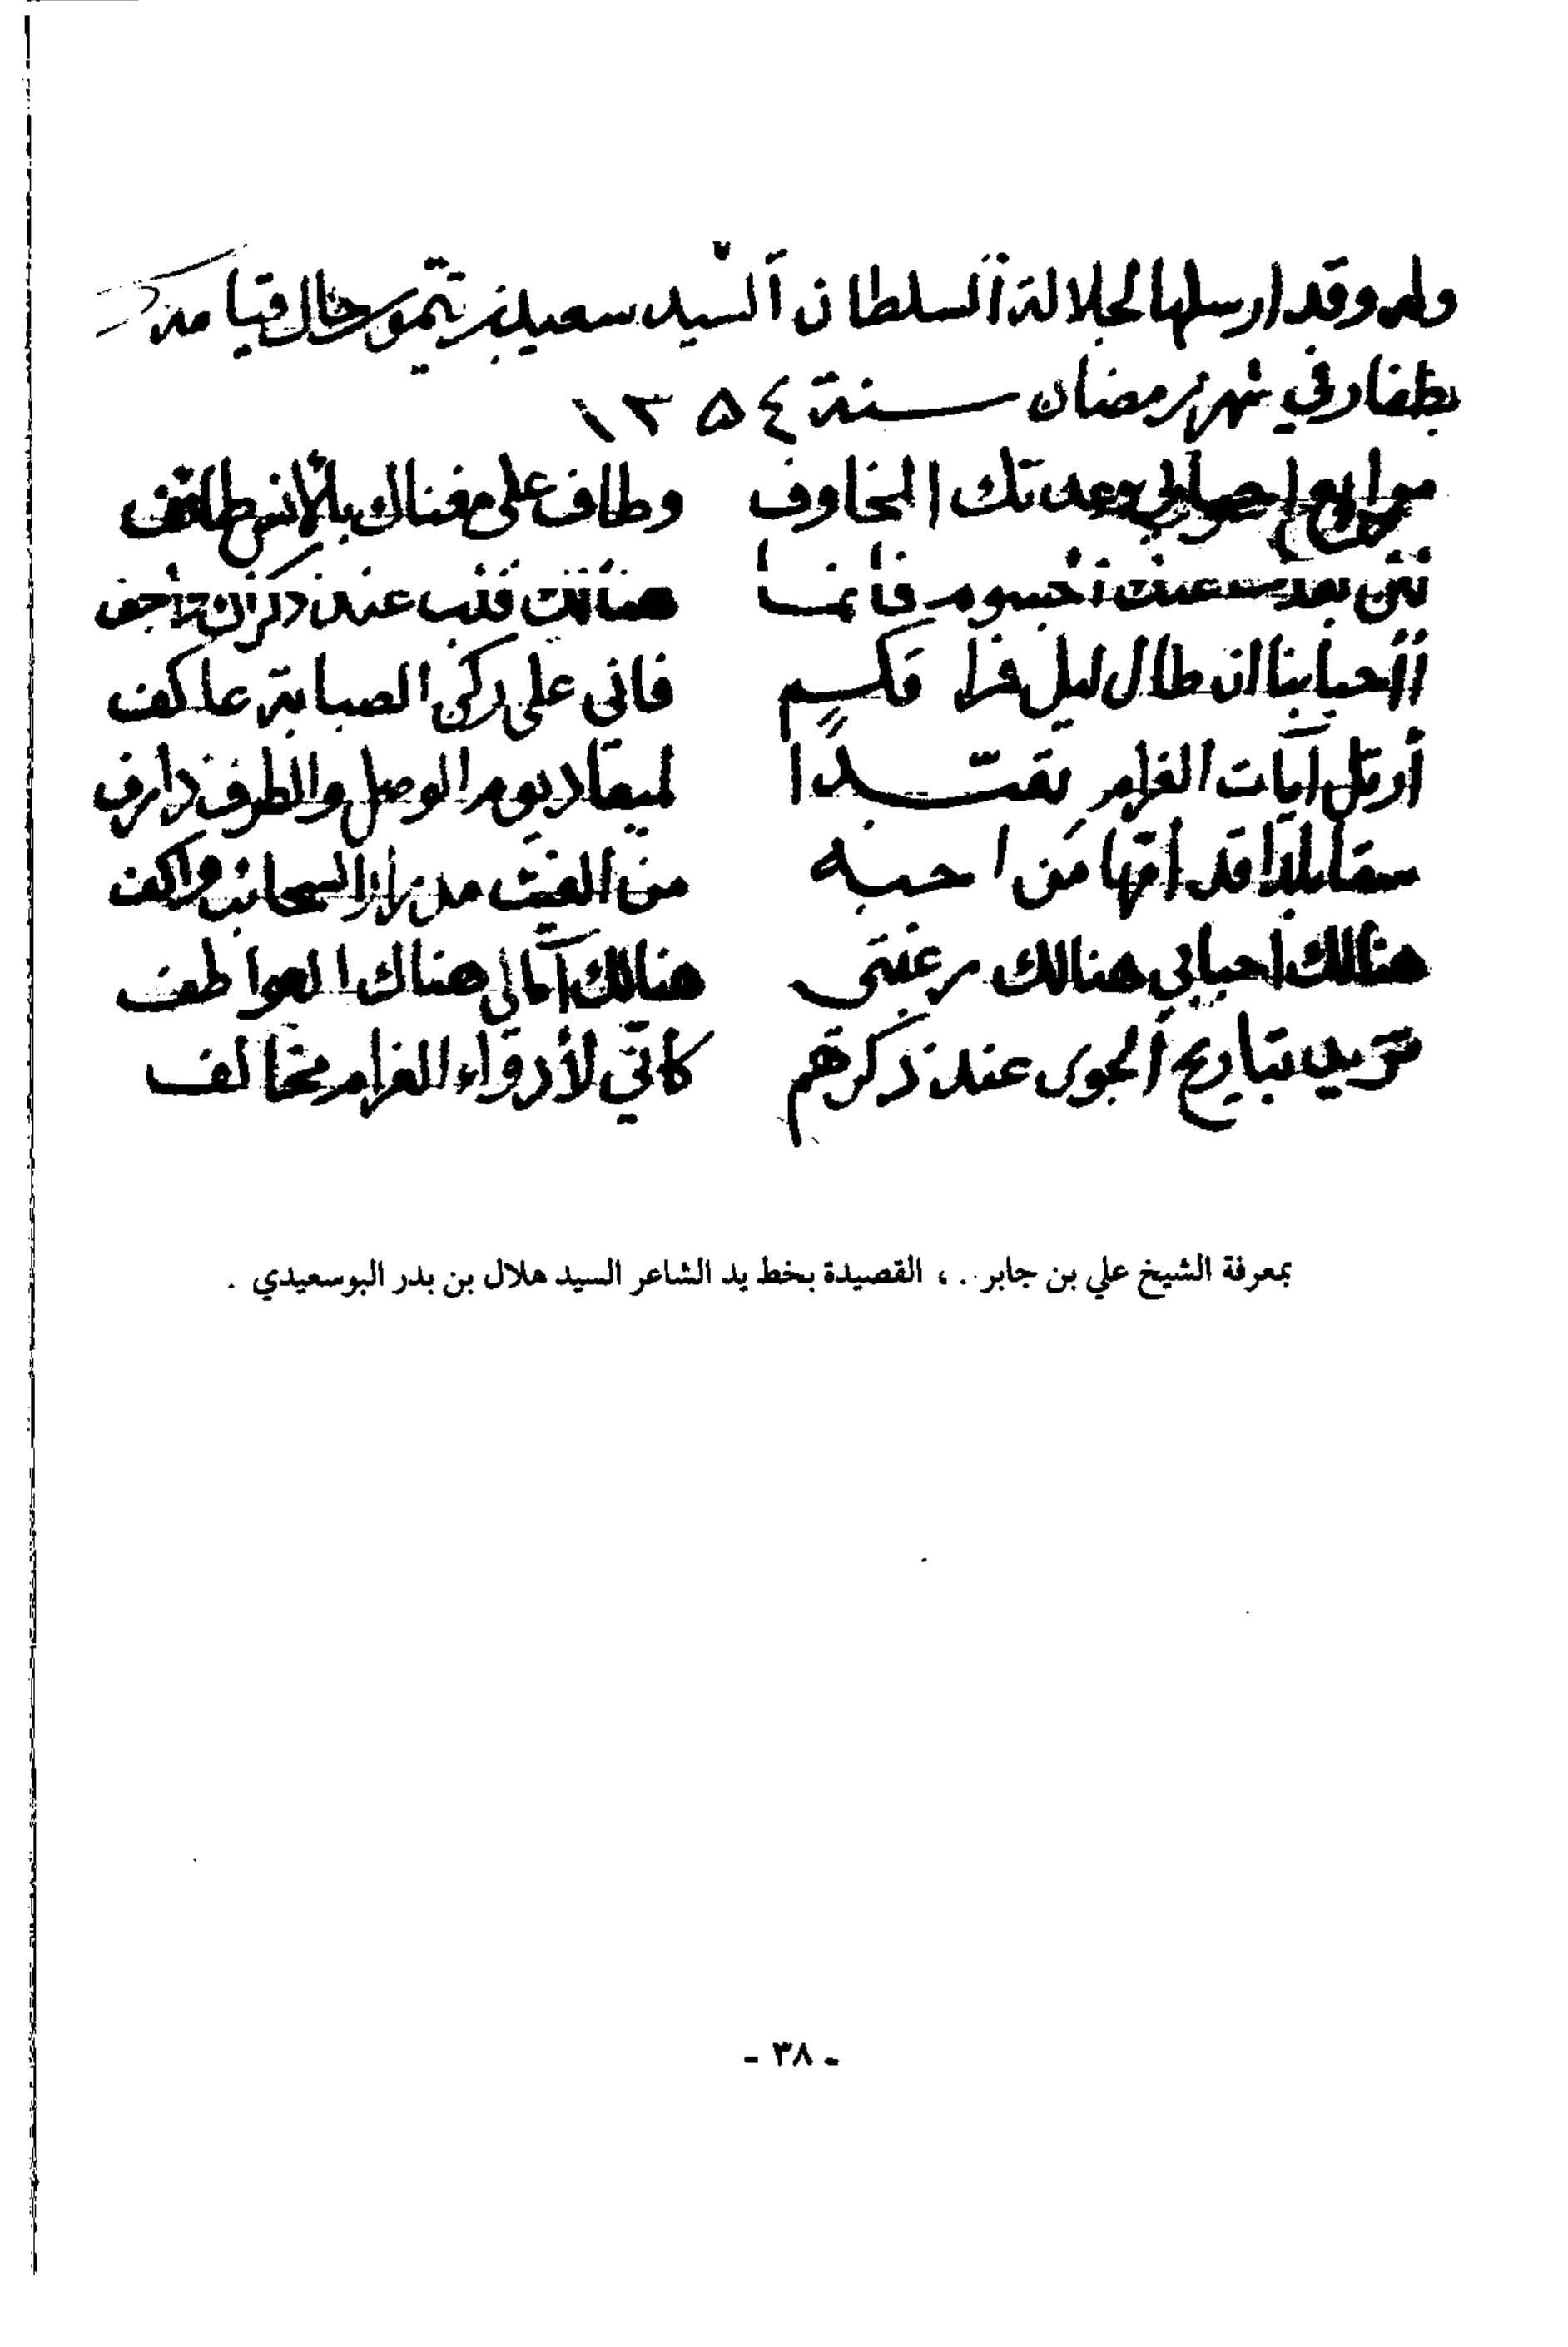 وله وقد ارسلها لجلالة السلطان السّيد سعيد بن تيمور حال قيامه
بظفار في شهر رمضان سنة ١٣٥٤
مرابع عدتك المخاوف وطاف على مغناك بالأنس طائف
لئن بعدت عنك الجسوم فانما هنالك قلب عند ذكراك راجف
أأحبابنا ان طال ليل فراقكم فاني على ركن الصبابة عاكف
أرتل آيات الغرام تعبّدًا لميعاد يوم الوصل والطرف ذارف
سقا بلدا قد أمّها مَن احبه من الغيث مدرارا السحائب واكف
هنالك احبابي هنالك رغبتي هنالك آمالي هناك العواطف
تزيد تباريح الجوى عند ذكرهم كأنّي لأدواء الغرام مخالف
بمعرفة الشيخ علي بن جابر . ، القصيدة بخط يد الشاعر السيد هلال بن بدر البوسعيدي .
- ٣٨ -